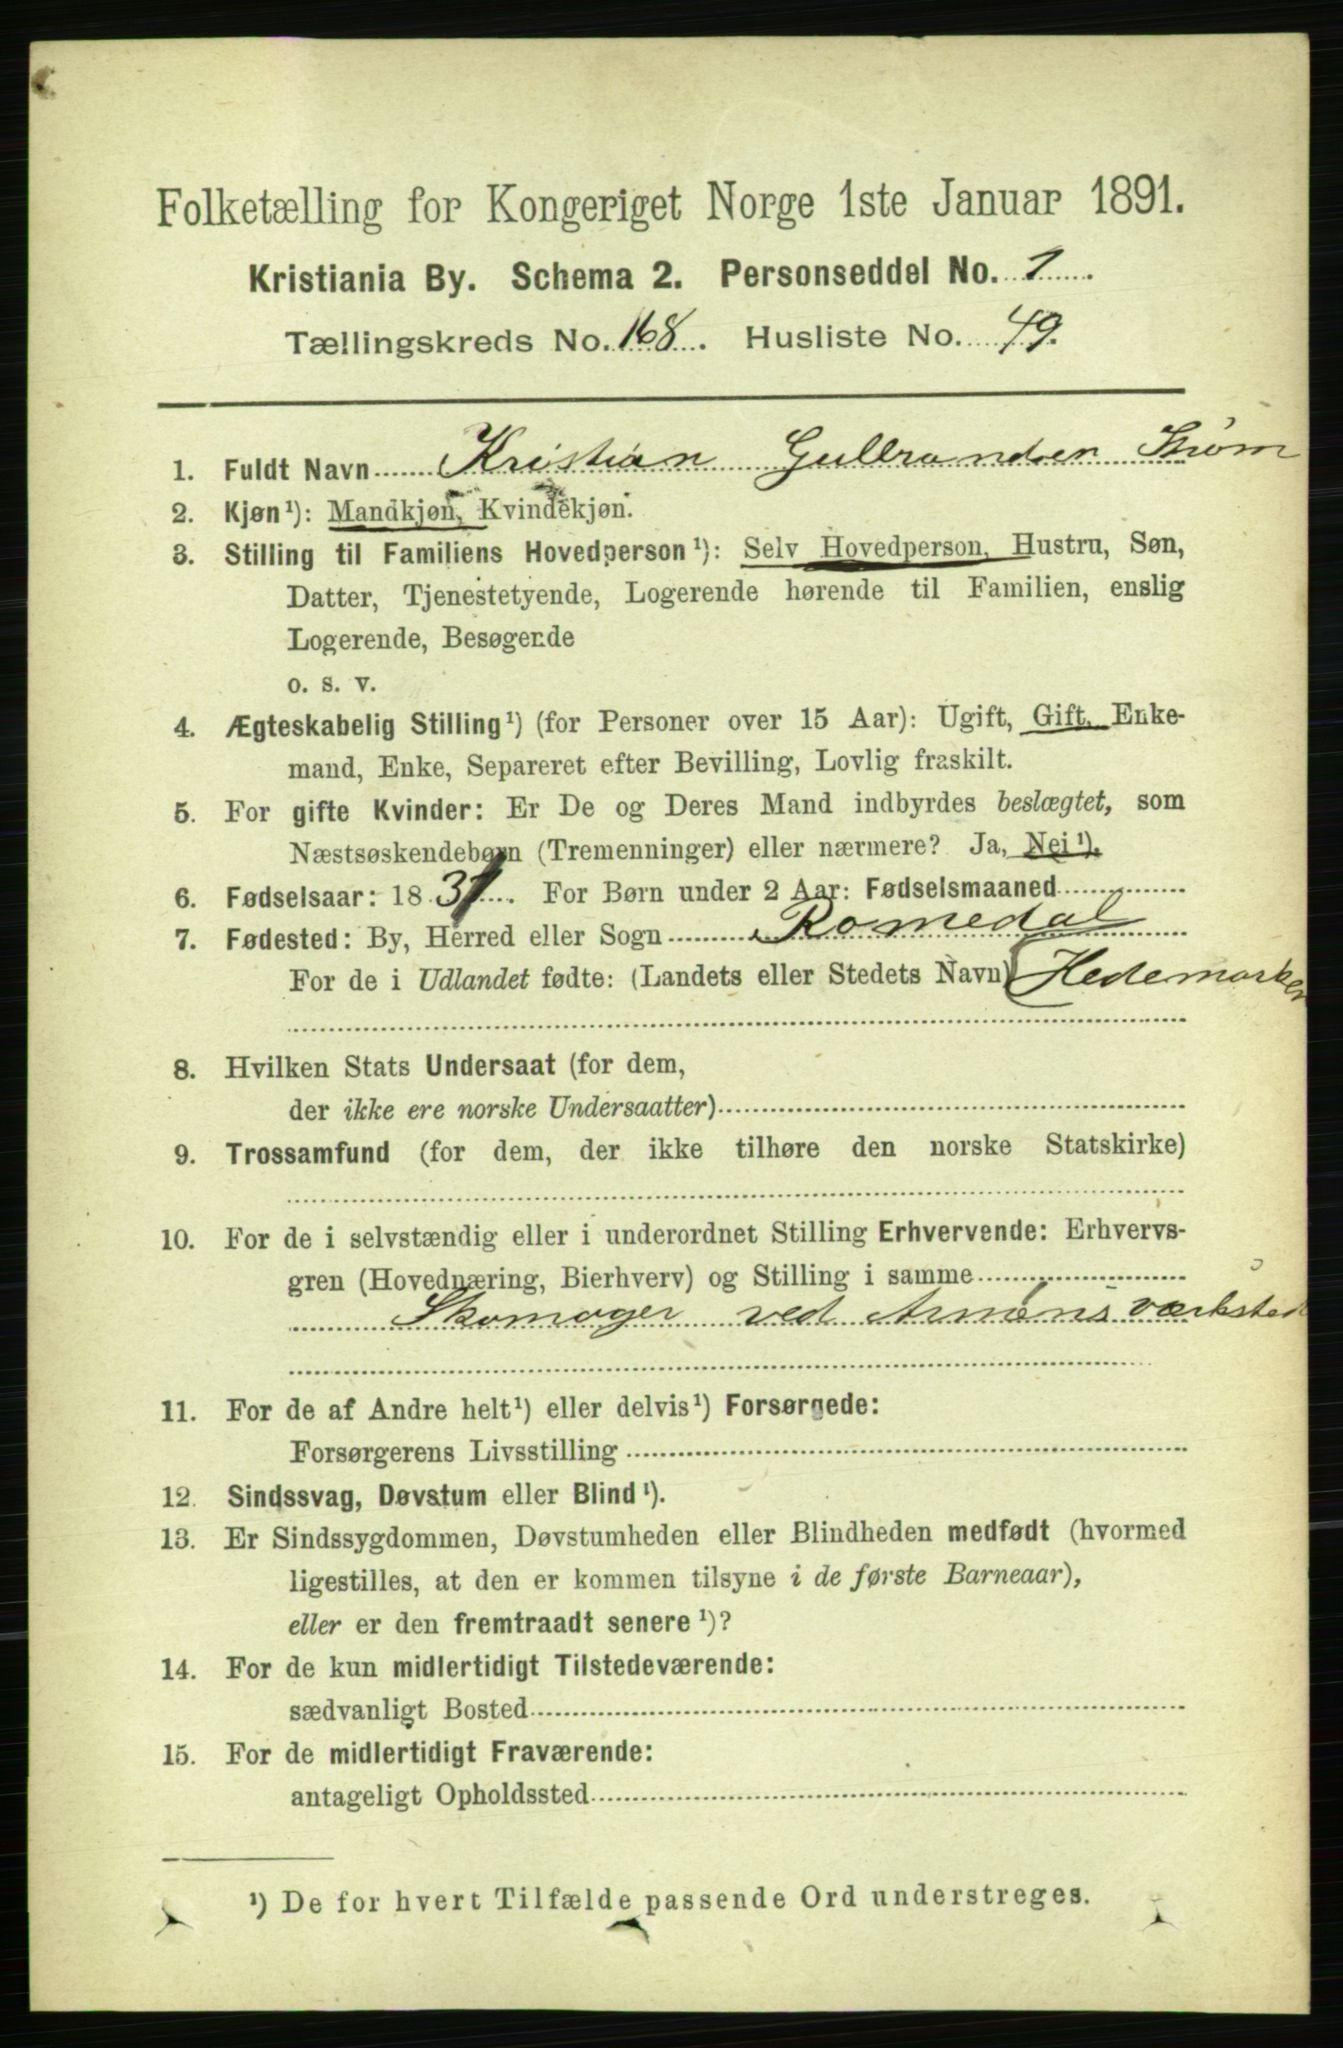 Folketælling for Kongeriget Norge 1ste Januar 1891.
Kristiania By. Schema 2. Personseddel No. 1
Tællingskreds No. 168. Husliste No. 49.
1. Fuldt Navn Kristian Gulbrandsen Strøm
2. Kjøn¹): Mandkjøn, Kvindekjøn.
3. Stilling til Familiens Hovedperson¹): Selv Hovedperson, Hustru, Søn,
Datter, Tjenestetyende, Logerende hørende til Familien, enslig
Logerende, Besøgende
o. s. v.
4. Ægteskabelig Stilling¹) (for Personer over 15 Aar): Ugift, Gift, Enke-
mand, Enke, Separeret efter Bevilling, Lovlig fraskilt.
5. For gifte Kvinder: Er De og Deres Mand indbyrdes beslægtet, som
Næstsøskendebørn (Tremenninger) eller nærmere? Ja, Nei¹).
6. Fødselsaar: 1831. For Børn under 2 Aar: Fødselsmaaned
7. Fødested: By, Herred eller Sogn Romedal
For de i Udlandet fødte: (Landets eller Stedets Navn) Hedemarken
8. Hvilken Stats Undersaat (for dem,
der ikke ere norske Undersaatter)
9. Trossamfund (for dem, der ikke tilhøre den norske Statskirke)
10. For de i selvstændig eller i underordnet Stilling Erhvervende: Erhvervs-
gren (Hovednæring, Bierhverv) og Stilling i samme
Skomager ved Armeens værksted
11. For de af Andre helt¹) eller delvis¹) Forsørgede:
Forsørgerens Livsstilling
12. Sindssvag, Døvstum eller Blind¹).
13. Er Sindssygdommen, Døvstumheden eller Blindheden medfødt (hvormed
ligestilles, at den er kommen tilsyne i de første Barneaar),
eller er den fremtraadt senere¹)?
14. For de kun midlertidigt Tilstedeværende:
sædvanligt Bosted
15. For de midlertidigt Fraværende:
antageligt Opholdssted
¹) De for hvert Tilfælde passende Ord understreges.